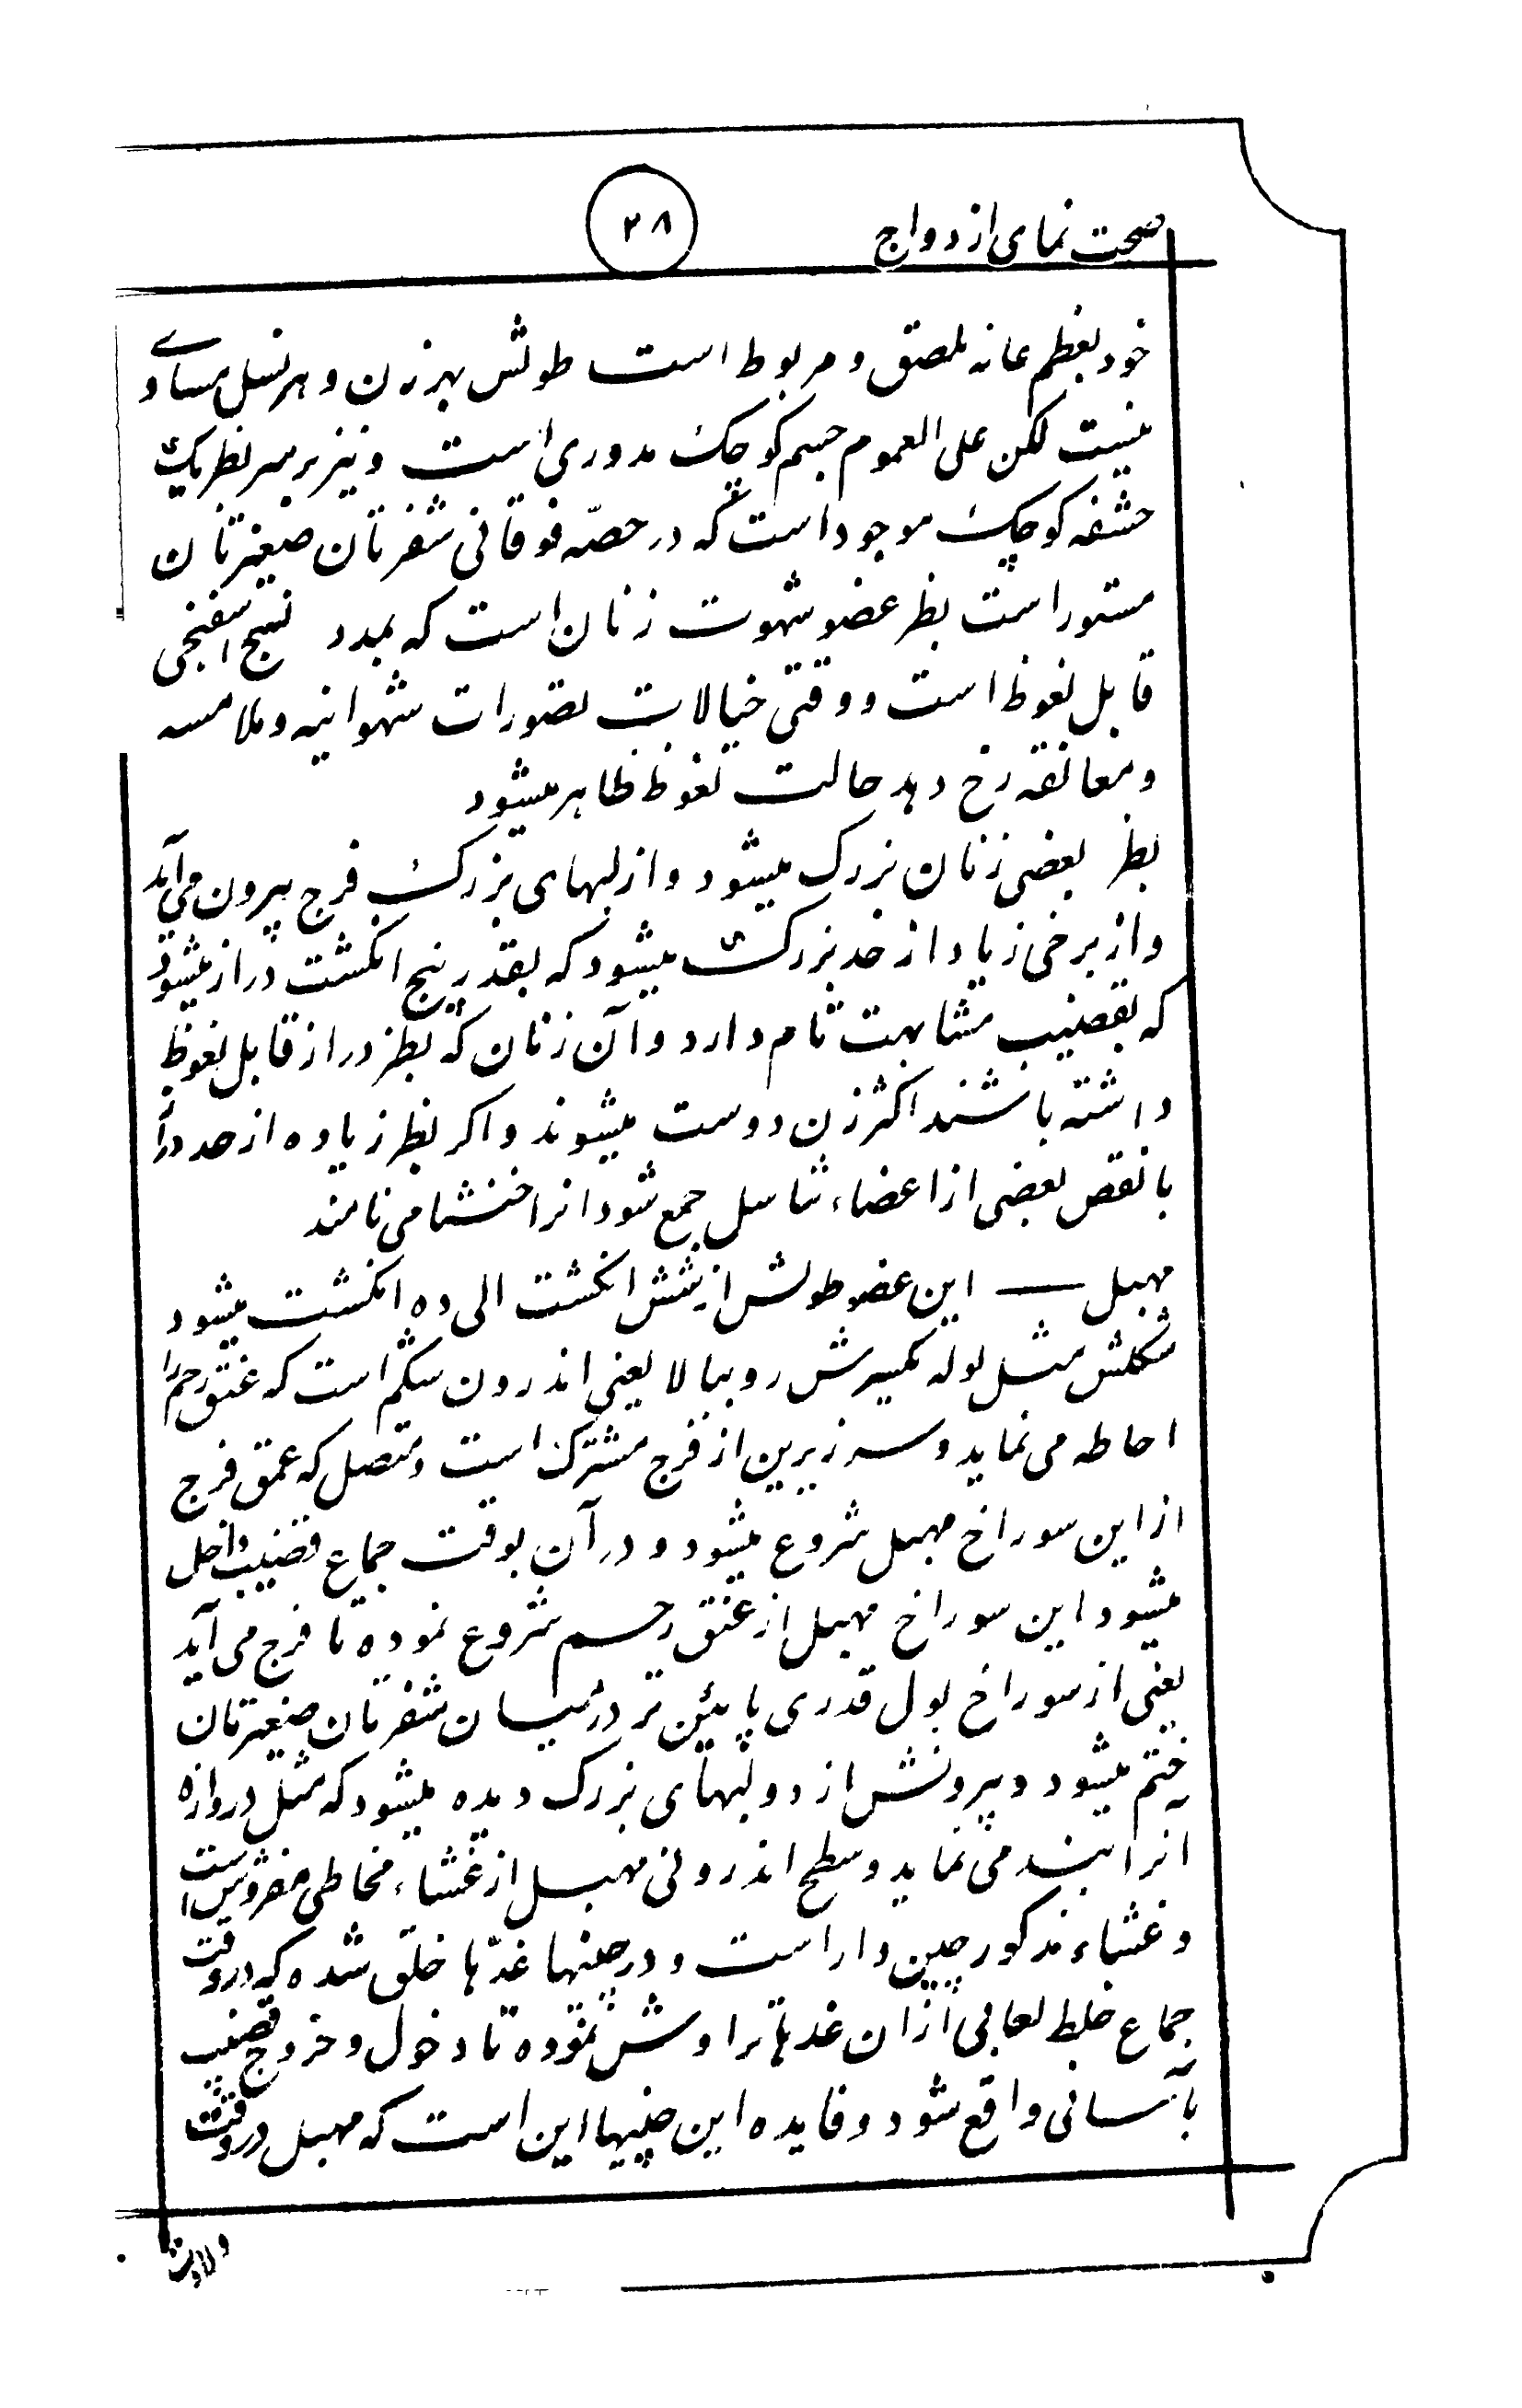 صحت نمای ازدواج
۲۸
خود بعظم عانه ملصق و مربوط است طولش بهر زن و هر نسل مساوی
نیست لکن علی العموم جسم کوچک مدوری است و نیز بر سر بظر یک
حشفه کوچک موجود است که در حصّه فوقانی شفرتان صغیرتان
مستور است بظر عضو شهوت زنان است که بمدد نسیج اسفنجی
قابل نغوظ است و وقتی خیالات تصورات شهوانیه و ملامسه
و معانقه رخ دهد حالت نغوظ ظاهر میشود
بظر بعضی زنان بزرک میشود و از لبهای بزرک فرج بیرون می آید
و از برخی زیاد از حد بزرک میشود که بقدر پنج انکشت دراز میشود
که بقضیب مشابهت تام دارد و آن زنان که بظر دراز قابل نغوظ
داشته باشند اکثر زن دوست میشوند و اکر بظر زیاده از حد دراز
با نقص بعضی از اعضاء تناسل جمع شود انرا خنشا می نامند
مهبل — این عضو طولش از شش انکشت الی ده انکشت میشود
شکلش مثل لوله یکسرش رو ببالا یعنی اندرون شکم است که عنق رحم را
احاطه می نماید و سر زیرین از فرج مشترک است و متصل که عمق فرج
از این سوراخ مهبل شروع میشود و در آن بوقت جماع قضیب داخل
میشود این سوراخ مهبل از عنق رحم شروع نموده تا فرج می آید
یعنی از سوراخ بول قدری پایئن تر در میان شفرتان صغیرتان
ختم میشود و بیرونش از دو لبهای بزرک دیده میشود که مثل دروازه
آنرا بند می نماید و سطح اندرونی مهبل از غشاء مخاطی مفروش است
و غشاء مذکور چین دار است و در چینها غدّها خلق شده که در وقت
جماع خلط لعابی از ان غدها تراوش نموده تا دخول و خروج قضیب
بآسانی واقع شود و فایده این چینها این است که مهبل در وقت
ولادت